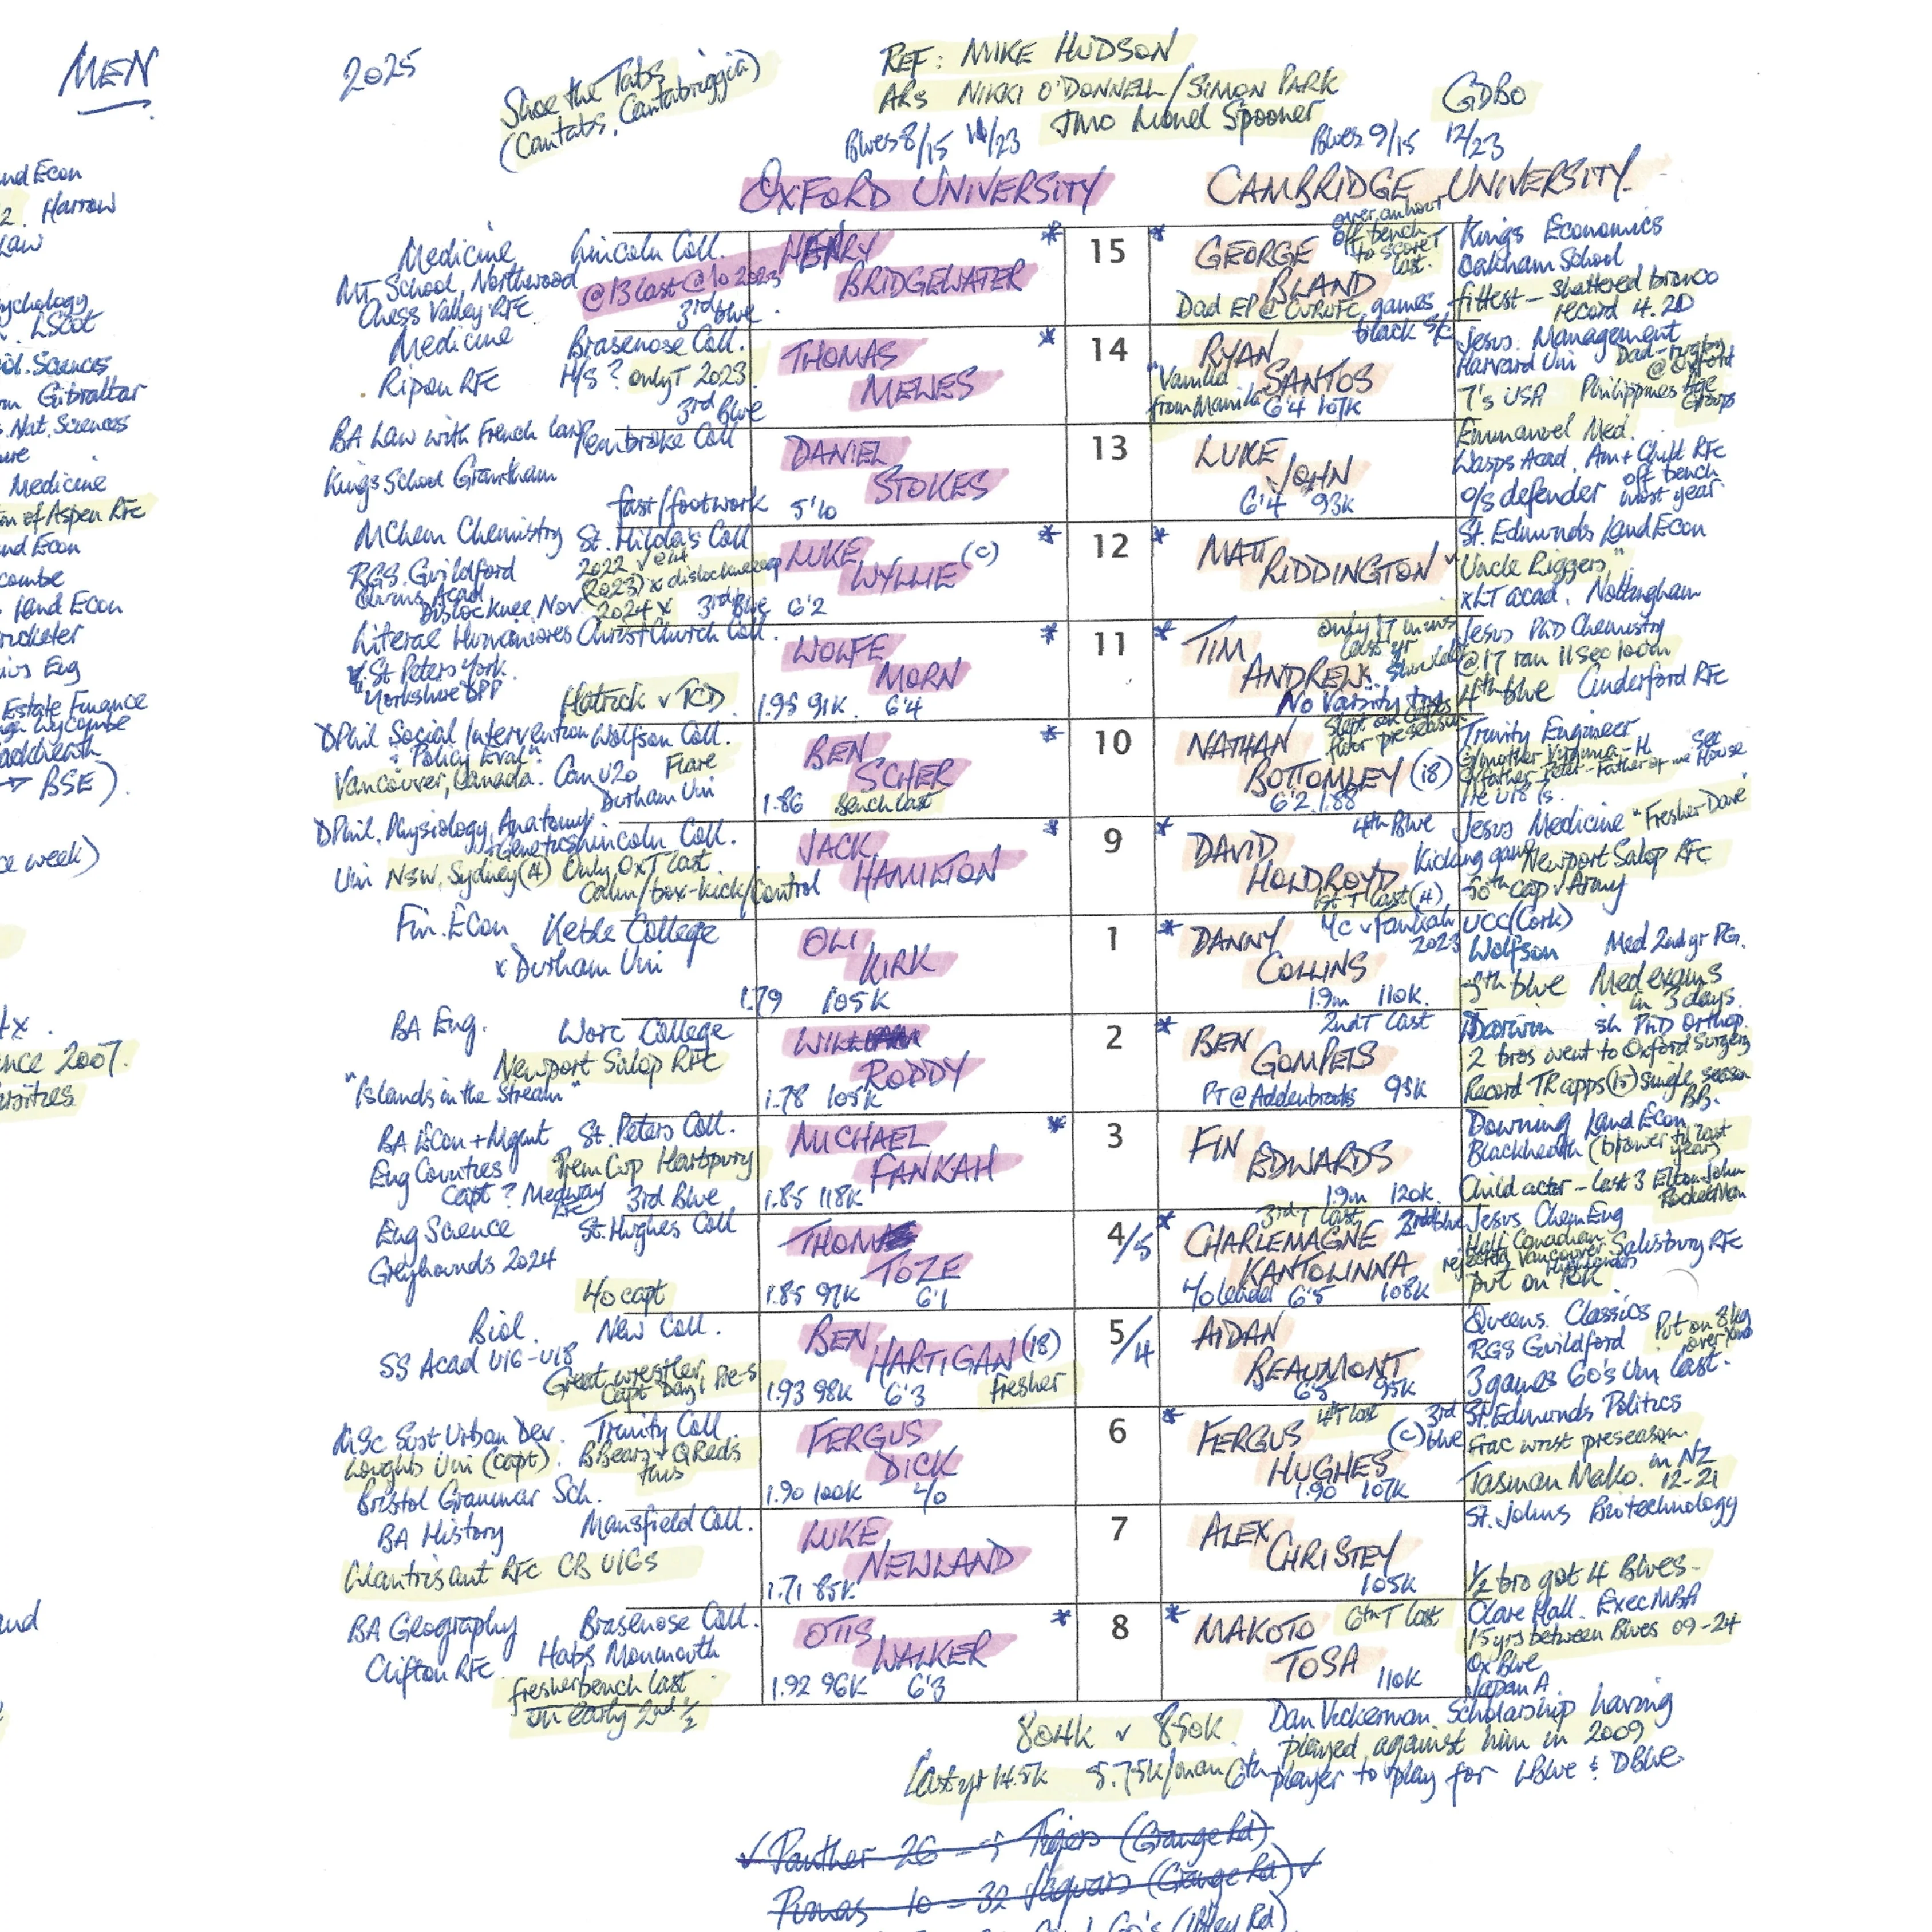 MEN
2025
Shoe the Tabs
(Cantabs, Cantabriggia)
REF: MIKE HUDSON
ARs NIKKI O'DONNELL/SIMON PARK
TMO Lionel Spooner
GDBO
Blues 8/15 11/23
Blues 9/15 12/23
OXFORD UNIVERSITY
CAMBRIDGE UNIVERSITY
and Econ
2. Harrow
Law
ychology
LScot
ol. Sciences
Gibraltar
. Nat. Sciences
ure
Medicine
of Aspen RFC
nd Econ
combe
. Land Econ
ricketer
Eng
Estate Finance
Wycombe
Blackheath
→ BSE)
ce week)
tx.
nce 2007.
and
Medicine Lincoln Coll.
MT School, Northwood
@13 last @10 2023
Chess Valley RFC 3rd blue
HENRY
BRIDGEWATER
*
15
*
GEORGE
BLAND
over an hour
off bench
to score T
last.
Dad EP @ CURUFC, games
Kings Economics
Oakham School
fittest - shattered bronco
record 4.20
Medicine Brasenose Coll.
Ripon RFC H/S? only T 2023
3rd Blue
THOMAS
MEWES
*
14
RYAN
SANTOS
black s/c
"Vanilla
from Manila
6'4 107K
Jesus. Management
Harvard Uni Dad - rugby
@ Oxford
7's USA Philippines Age
Groups
BA Law with French Law Pembroke Coll
Kings School Grantham
fast/footwork
DANIEL
STOKES
5'10
13
LUKE
JOHN
6'4 93K
Emmanuel Med.
Wasps Acad. Am + Chilt RFC
o/s defender off bench
most year
MChem Chemistry St. Hilda's Coll
RGS. Guildford 2022
Quins Acad (2023) x
Disloc knee Nov 2024 x 3rd Blue
LUKE
WYLLIE (c)
6'2
*
12
*
MATT
RIDDINGTON
St. Edmunds Land Econ
"Uncle Riggers"
xLT acad. Nottingham
Literae Humaniores Christ Church Coll.
St Peters York.
Yorkshire DPP
Hatrick v TCD
WOLFE
MORN
1.95 91K. 6'4
*
11
*
TIM
ANDREW
only 17 mins
last yr
shoulder
No Varsity try
Jesus PhD Chemistry
@17 ran 11sec 100m
4th blue Cinderford RFC
DPhil Social Intervention Wolfson Coll.
+ Policy Eval.
Vancouver, Canada. Can U20 Flare
Durham Uni
BEN
SCHER
1.86 Bench last
*
10
NATHAN
BOTTOMLEY (18)
6'2 1.88
floor preseason
Trinity Engineer
G/mother Virginia - H. Sec
G/father - Peter - Father of the House
DPhil. Physiology, Anatomy
+ Genetics Lincoln Coll.
Uni NSW, Sydney (A) Only Ox T last
Calm/box-kick/control
JACK
HAMILTON
*
9
*
DAVID
HOLDROYD
4th Blue
Kicking game
1st T last (4)
Jesus Medicine "Fresher Dave"
Newport Salop RFC
50th cap v Army
Fin. Econ Keble College
x Durham Uni
OLI
KIRK
1.79 105K
1
*
DANNY
COLLINS
Yc v Fankah
2023
1.9m 110K.
UCC (Cork)
Wolfson Med 2nd yr PG.
5th blue Med exams
in 3 days.
BA Eng. Worc College
Newport Salop RFC
"Islands in the Stream"
WILL
RODDY
1.78 105K
2
*
BEN
GOMPELS
2nd T last
PT @ Addenbrooks 95K
Darwin 5h PhD Orthop.
2 bros went to Oxford Surgery
Record TR apps (15) single season
BB.
BA Econ + Mgent St. Peters Coll.
Eng Counties Prem Cup Hartpury
Capt? Medway RFC 3rd Blue
MICHAEL
FANKAH
1.85 118K
*
3
FIN
EDWARDS
1.9m 120K
Downing Land Econ
Blackheath (b/power til last
year)
Child actor - last 3 Elton John
RocketMan
Eng Science St. Hughes Coll
Greyhounds 2024
4o capt
THOM
TOZE
1.85 97K 6'1
4/5
*
CHARLEMAGNE
KANTOLINNA
3rd T last 3rd blue
4o leader 6'5 108K
Jesus Chem Eng
Half Canadian
rejected Vancouver Highlanders Salisbury RFC
put on 10K
Biol. New Coll.
SS Acad U16-U18
Great wrestler
Capt Day 1 Pre-S
BEN
HARTIGAN (18)
1.93 98K 6'3 fresher
5/4
AIDAN
BEAUMONT
6'5 95K
Queens. Classics
RGS Guildford Put on 8kg
over Xmas
3 games 60's Uni last.
MSc Sust Urban Dev. Trinity Coll.
Loughb Uni (capt). BBears v QReds
Bristol Grammar Sch.
FERGUS
DICK
1.90 100K 4/o
6
*
FERGUS
HUGHES
4T last (c) 3rd blue
1.90 107K
St. Edmunds Politics
frac wrist preseason.
Tasman Mako. in NZ
12-21
BA History Mansfield Coll.
Llantrisant RFC CB U16s
LUKE
NEWLAND
1.71 85K
7
ALEX
CHRISTEY
105K
St. Johns Biotechnology
1/2 bro got 4 Blues -
BA Geography Brasenose Coll.
Clifton RFC Habs Monmouth
fresher bench last
on early 2nd 1/2
OTIS
WALKER
1.92 96K 6'3
*
8
*
MAKOTO
TOSA
6th T last
110K
Clare Hall. Exec MBA
15yrs between Blues 09-24
Ox Blue
Japan A.
804K v 850K
Last yr 14.5K 5.75K/man
Dan Vickerman Scholarship having
played against him in 2009
6th player to play for LBlue & DBlue
✓ Panther 26 - 5 Tigers (Grange Rd)
Pumas 10 - 32 Jaguars (Grange Rd) ✓
60's (Iffley Rd)